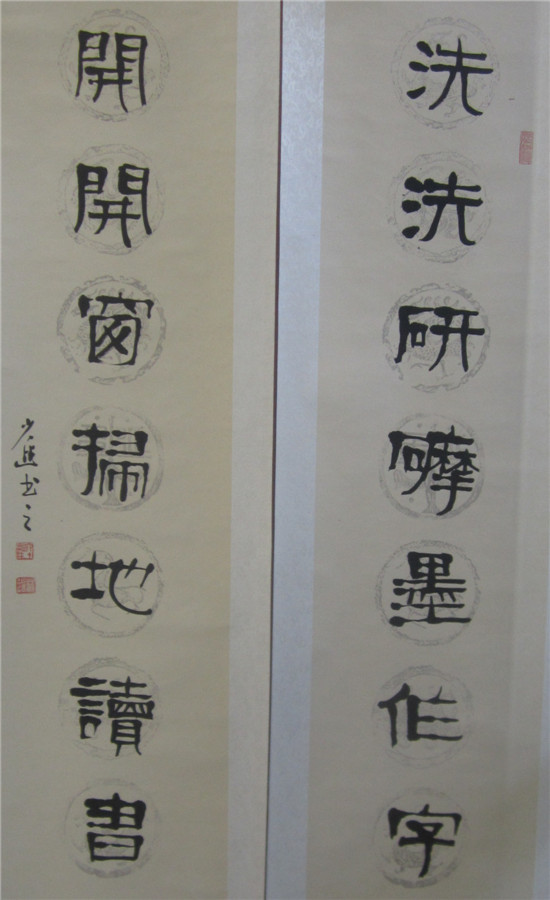 洗洗研礳墨作字
開開窗掃地讀書
少逸书之